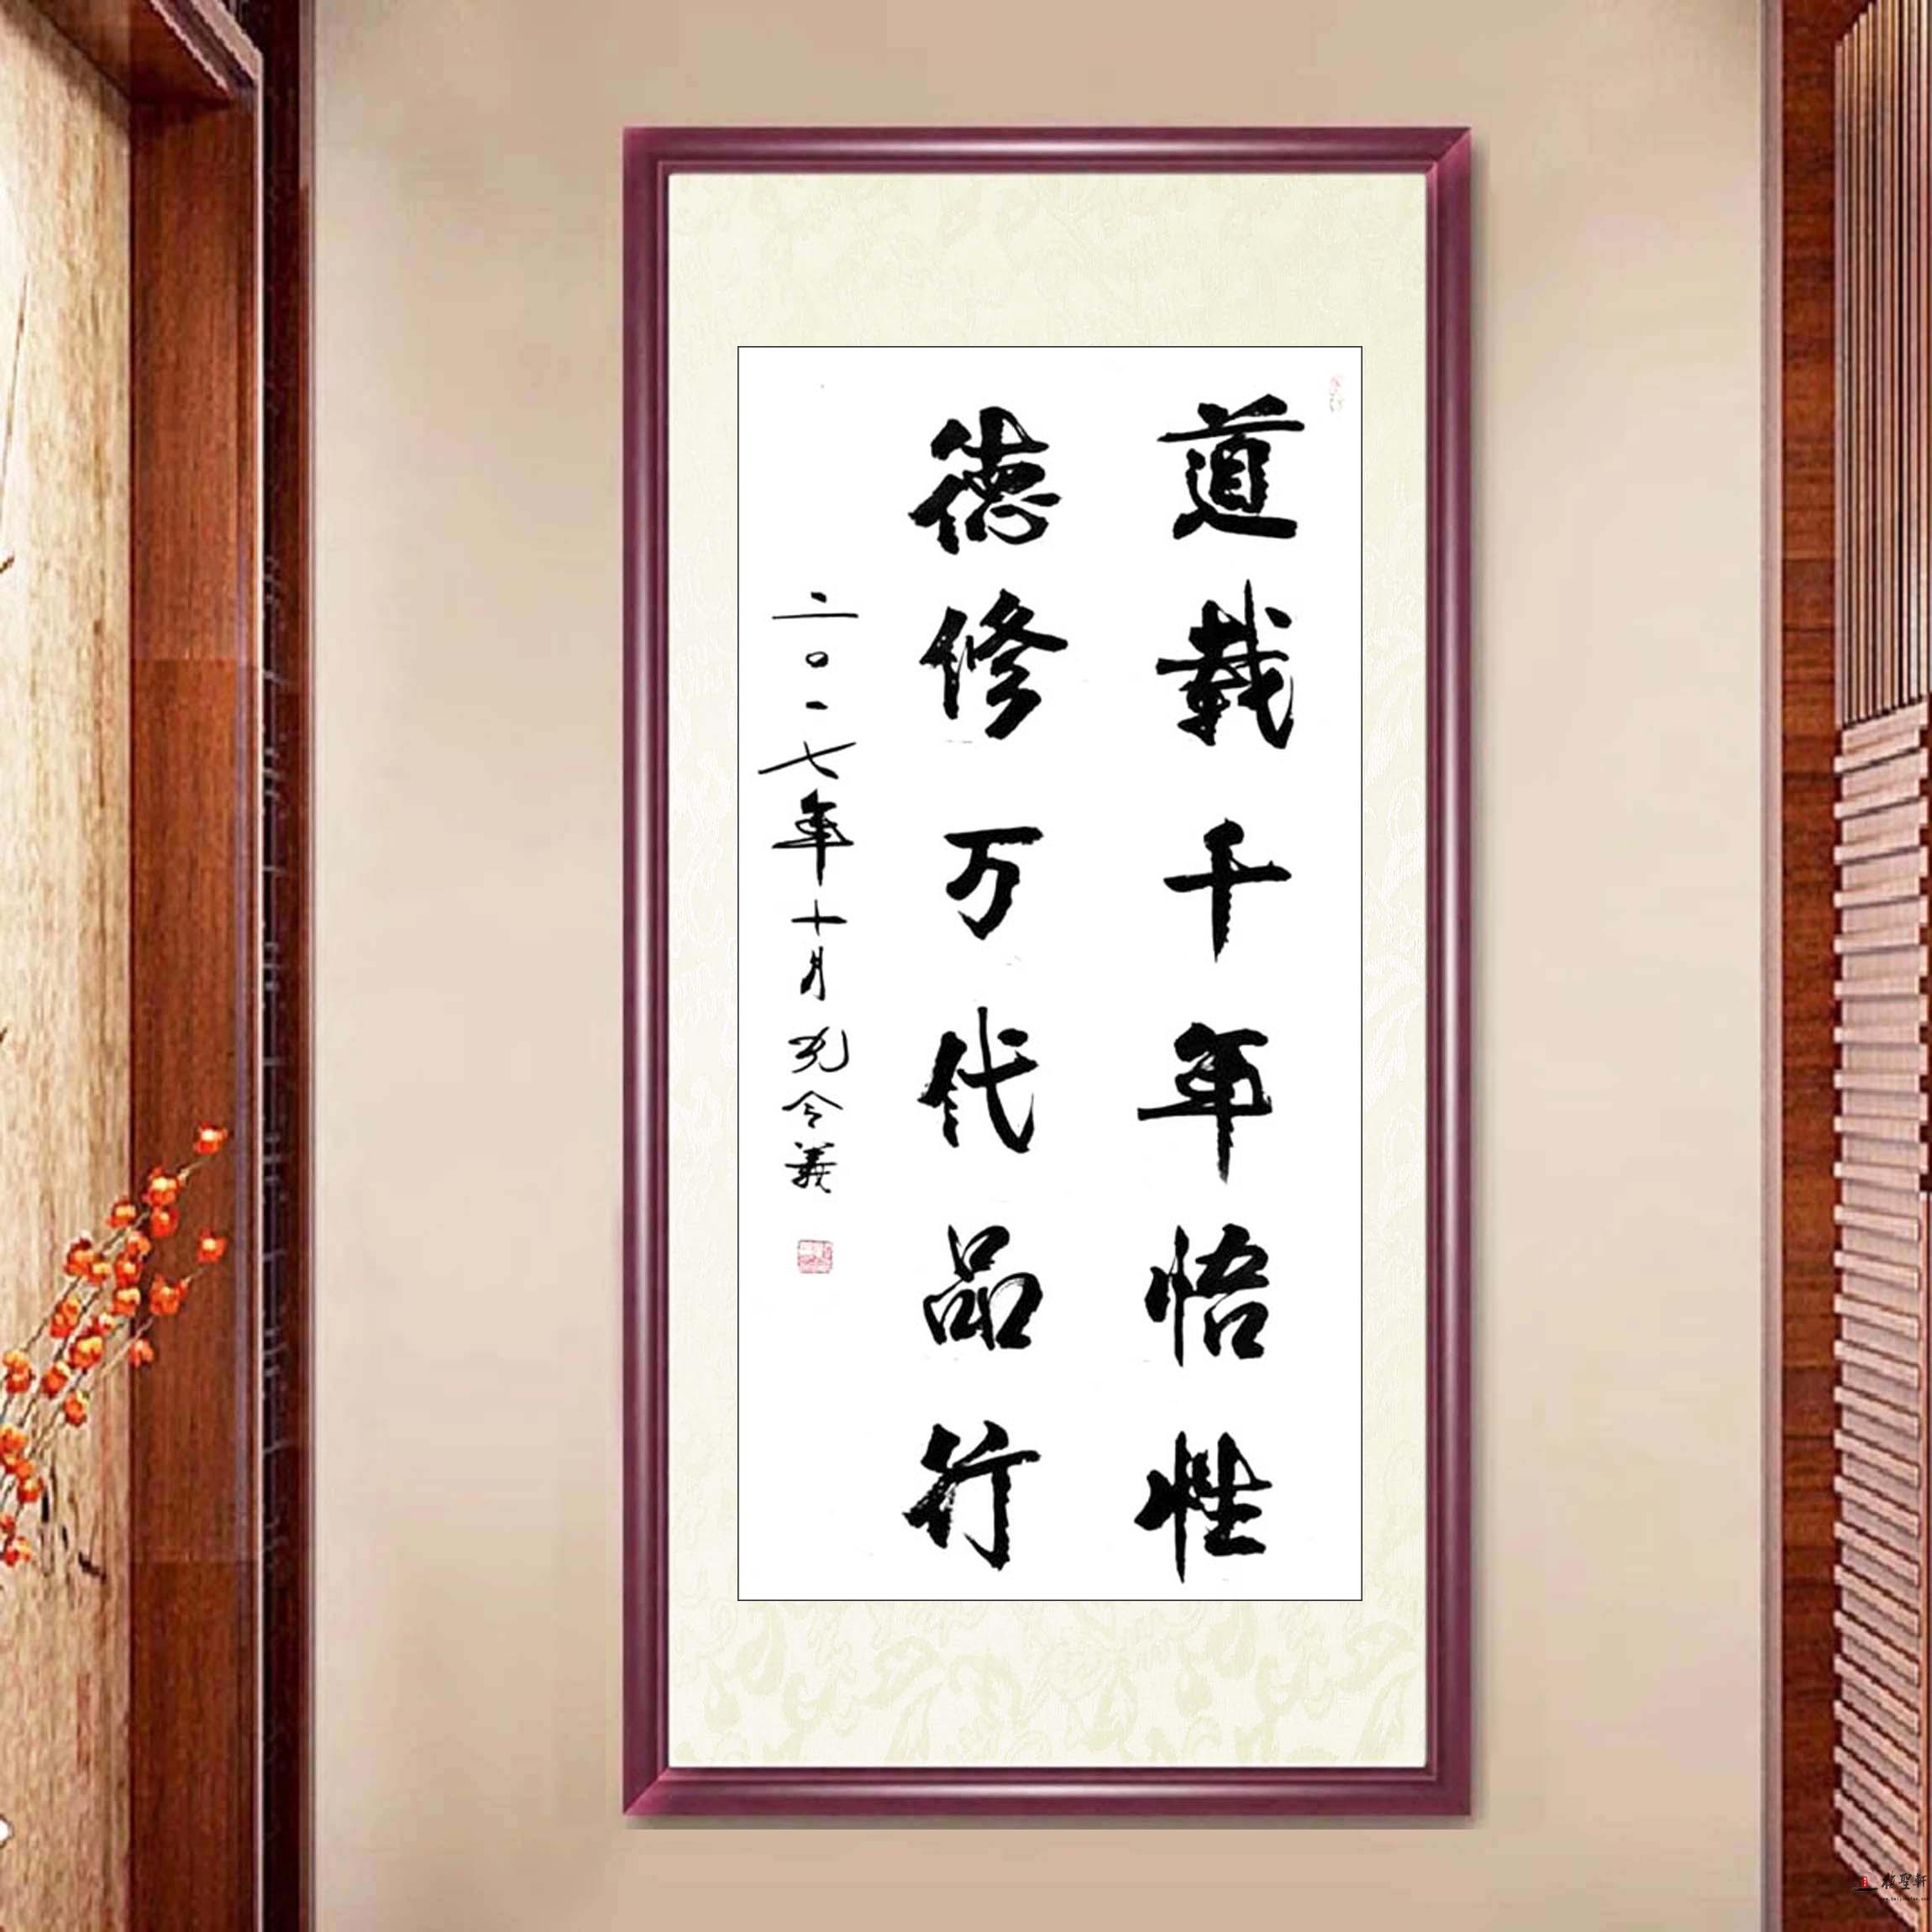 道载千年悟性
德修万代品行
二〇一七年十月孔令義